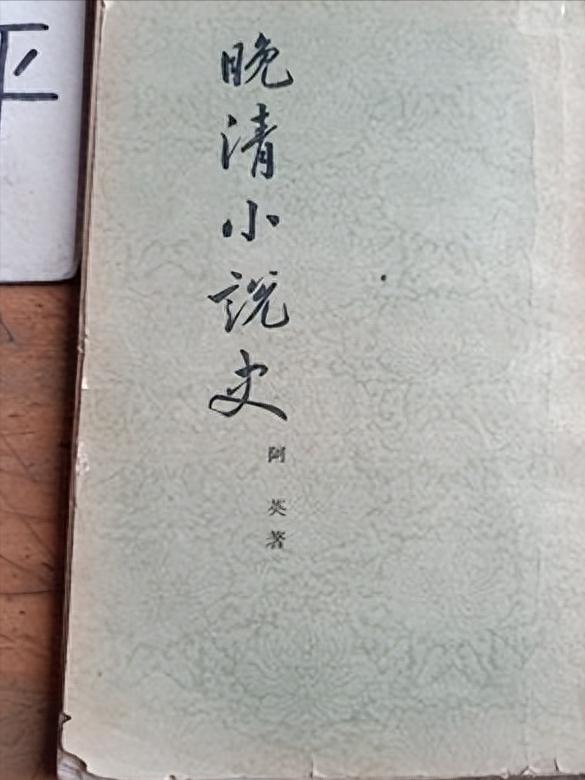 平
晚清小說史
阿英著